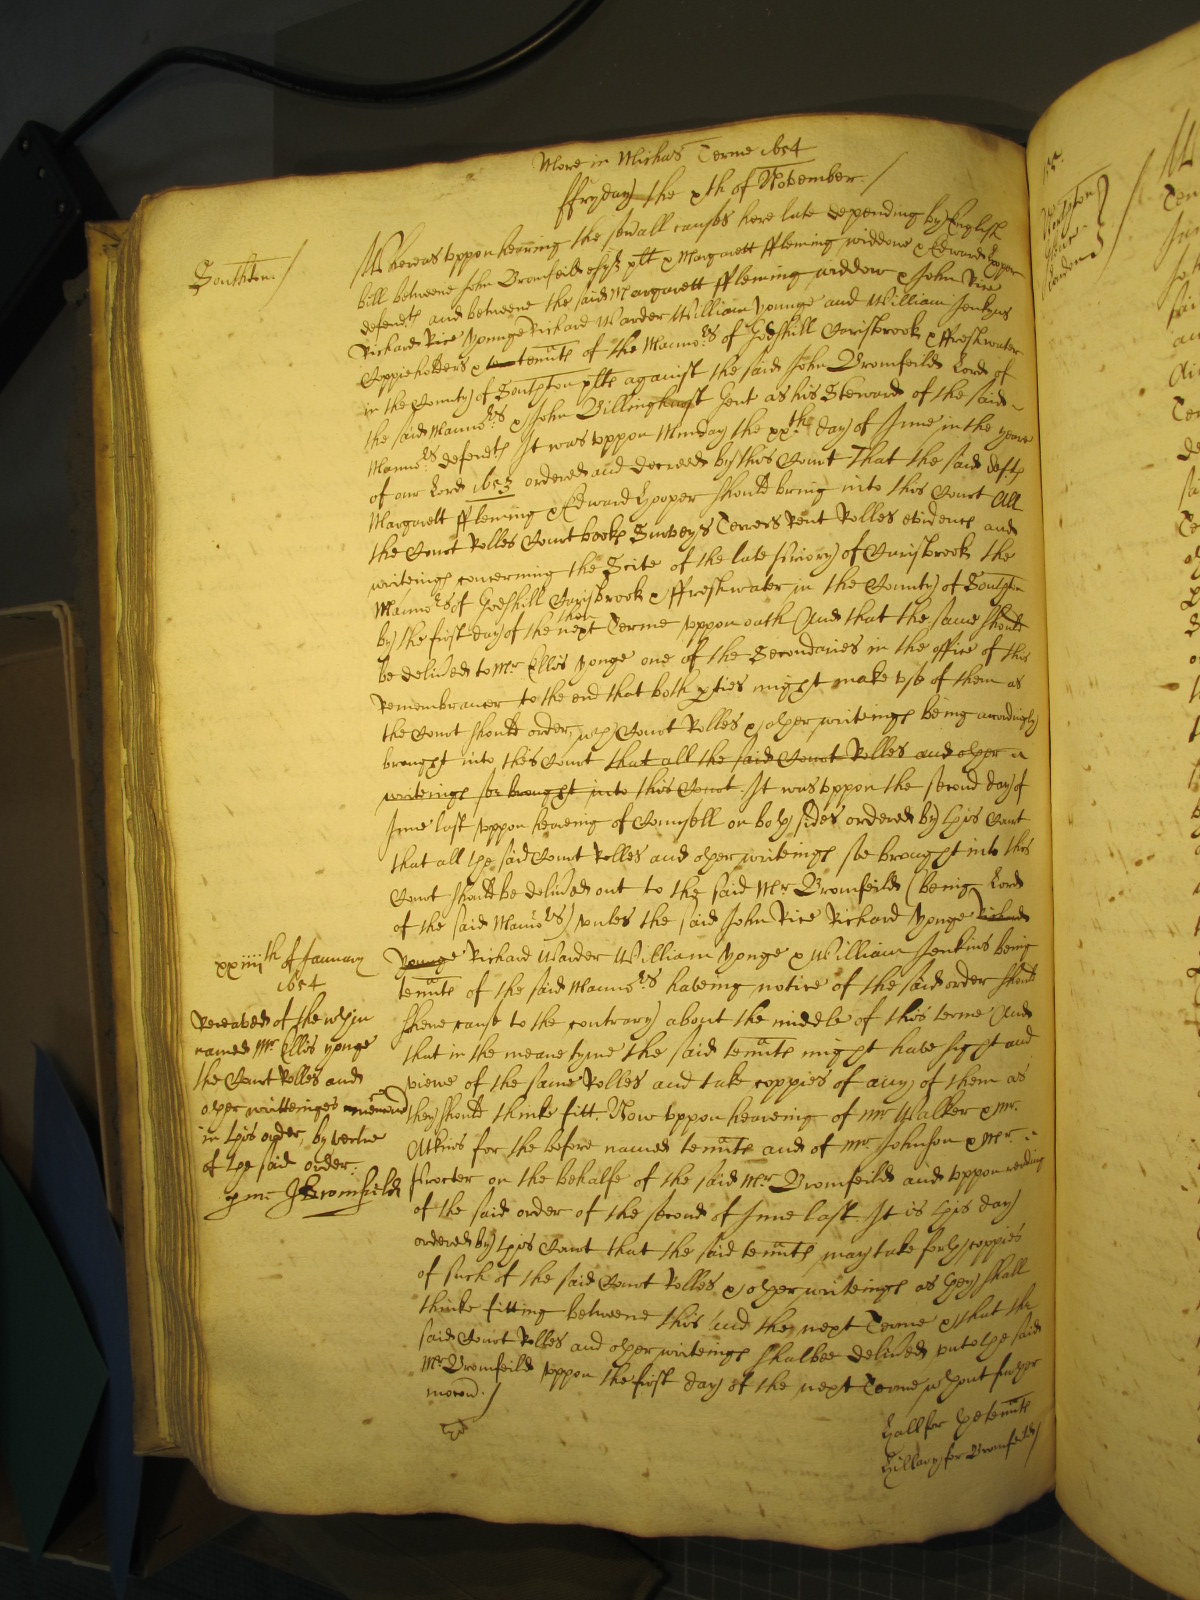 More in Michas Terme 1654
ffryday the xth of November.
Southton.
Whereas uppon heareing the sevall causes here late depending by English
bill betweene John Bromfeild esqr plt & Margarett ffleming widdowe & Edward Hooper
defendts and betweene the said Margarett ffleming widdow & John Rice
Richard Rice Yonnge Richard Warder William Younge and William Jenkyns
Coppieholders & tennts of the Manno:rs of Godshill Carisbrook & ffreshwater
in the County of Southton plts against the said John Bromfeild Lord of
the said Manno:rs & John Billinghurst Gent as his Steward of the said
Manno:rs defendts It was uppon Munday the xxth day of June in the yeare
of our Lord 1653 ordered and decreed by this Court That the said defts
Margarett ffleming & Edward Hooper should bring into this Court All
the Court Rolles Court bookes Surveys Terrers Rent Rolles evidences and
writeings concerning the Scite of the late Priory of Carisbrook the
Manno:rs of Godshill Carisbrook & ffreshwater in the County of Southton
by the first day of the then next Terme uppon oath And that the same should
be delived to Mr Ellis Yonge one of the Secondaries in the office of this
Remembrancer to the end that both pties might make use of them as
the Court should order, wch Court Rolles & other writeings being accordingly
brought into this Court that all the said Court Rolles and other
writeings soe brought into this Court. It was uppon the second day of
June last uppon heareing of Counsell on both sides ordered by this Court
that all the said Court Rolles and other writeings soe brought into this
Court should be delived out to the said Mr Bromfeild (being Lord
of the said Manno:rs) unles the said John Rice Richard Yonge Richard
Younge Richard Warder William Yonge & William Jenkins being
tennts of the said Manno:rs haveing notice of the said order should
shewe cause to the contrary about the middle of this terme And
that in the meane tyme the said tennts might have sight and
viewe of the same Rolles and take coppies of any of them as
they should thinke fitt. Now uppon heareing of Mr Walker & Mr
Atkins for the before named tennts and of Mr Johnson & Mr
Procter on the behalfe of the said Mr Bromfeild and uppon reading
of the said order of the second of June last It is this day
ordered by this Court that the said tennts may take forth coppies
of such of the said Court Rolles & other writeings as they shall
thinke fitting betweene this and the next Terme & that the
said Court Rolles and other writeings shalbee delived unto the said
Mr Bromfeild uppon the first day of the next Terme without further
mocon.
Hall for the tennts
Hillary for Bromfeild
xxiiiith of January
1654
Receaved of the wthin
named Mr Ellis Yonge
the Court Rolles and
other writteinges menconed
in this order, by vertue
of the said order.
p me J Bromfeild